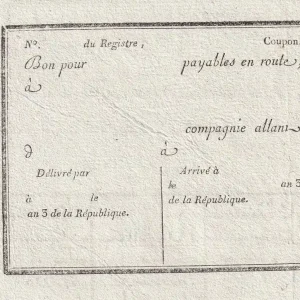 N.º du Registre, Coupon
Bon pour payables en route,
à
compagnie allant
d à
Délivré par
Arrivé à
à le
le an 3
an 3 de la République.
de la République.